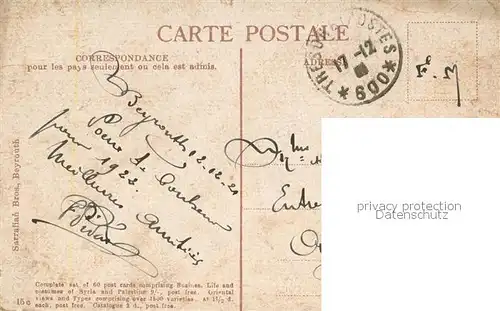 CARTE POSTALE
CORRESPONDANCE
pour les pays seulement ou cela est admis.
ADRESSE
TRESOR ET POSTES
17-12
*600*
F. M
Beyrouth 12-12-21
Pour le bonheur
pour 1922
Meilleures Amitiés
Mme
Entre
privacy protection
Datenschutz
Sarrafian Bros., Beyrouth
Complete set of 60 post cards comprising Busines, Life and
costumes of Syria and Palestine 9/-, post free. Oriental
views and Types comprising over 1500 varieties. at 1 1/2 d.
each, post free. Catalogue 3 d., post free.